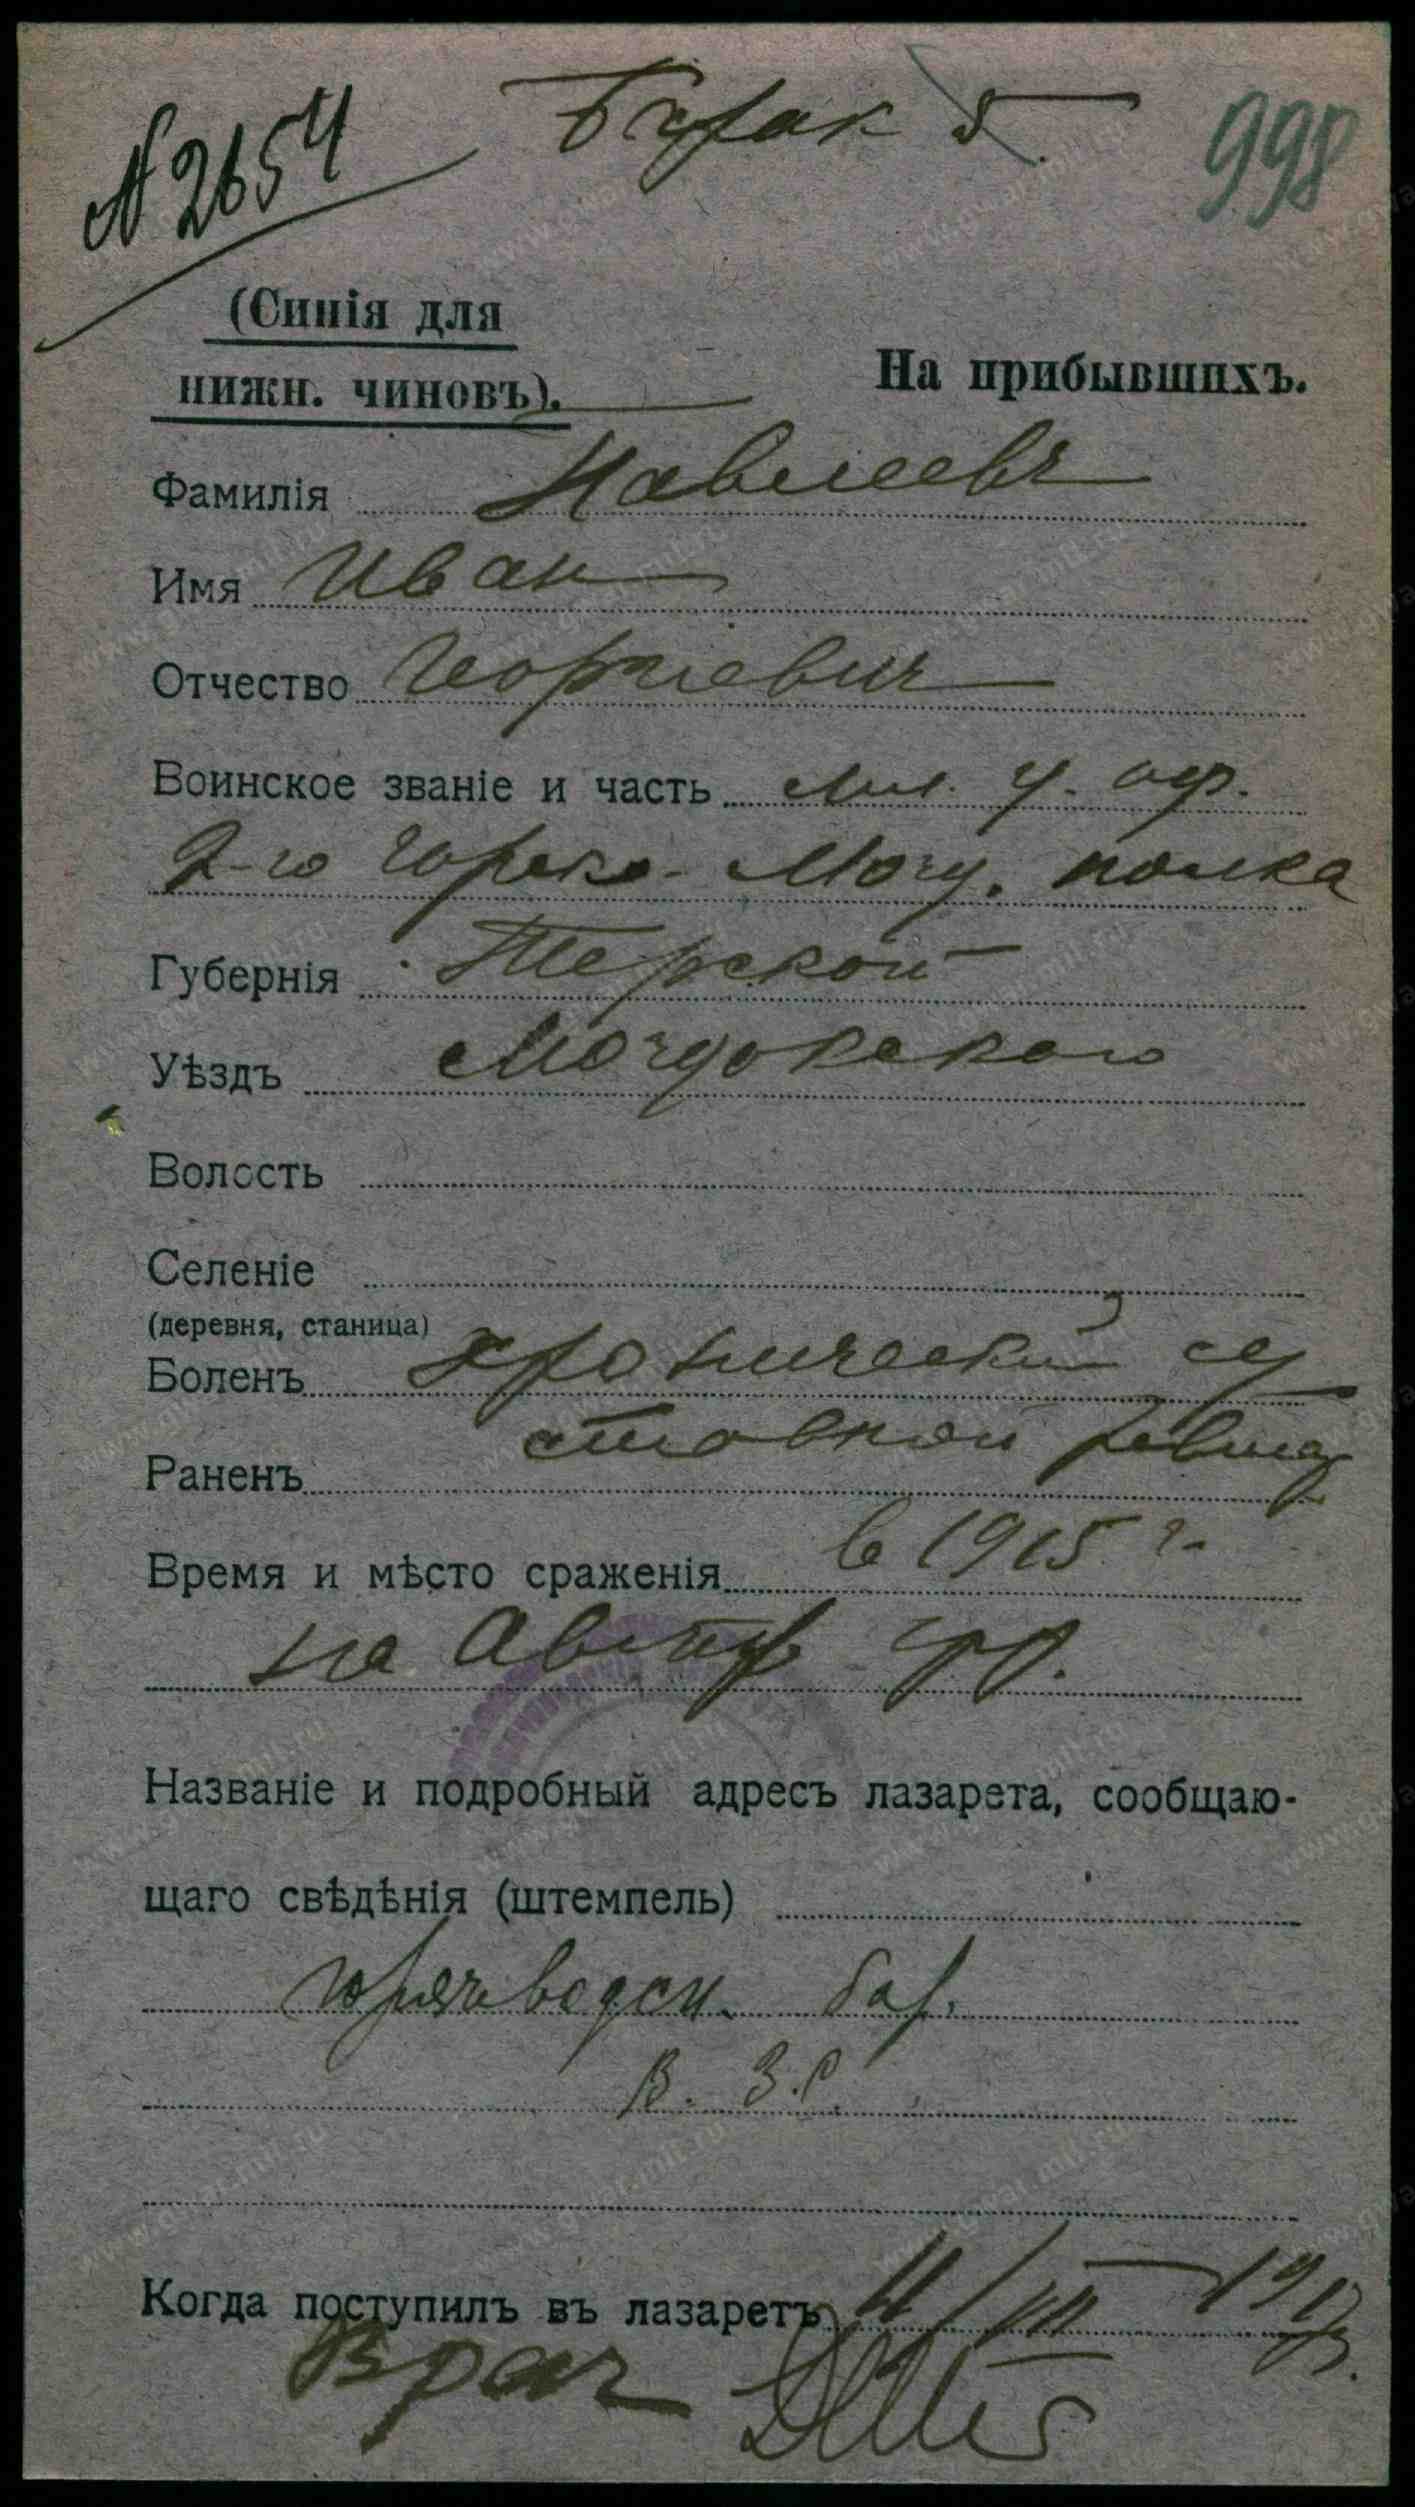 № 2654
Барак 5.
998
(Синія для
нижн. чиновъ).
На прибывшихъ.
Фамилія Павлеевъ
Имя Иван
Отчество Георгіевич
Воинское званіе и часть мл. у. оф.
2-го Горско-Мозд. полка
Губернія Терской
Уѣздъ Моздокскаго
Волость
Селеніе
(деревня, станица)
Боленъ хроническій су
ставной ревма
Раненъ
Время и мѣсто сраженія в 1915 г.
на Австр фр.
Названіе и подробный адресъ лазарета, сообщаю-
щаго свѣдѣнія (штемпель)
Горячеводск. бар.
В. З. С.
Когда поступилъ въ лазаретъ 11/VII 1917
Врач